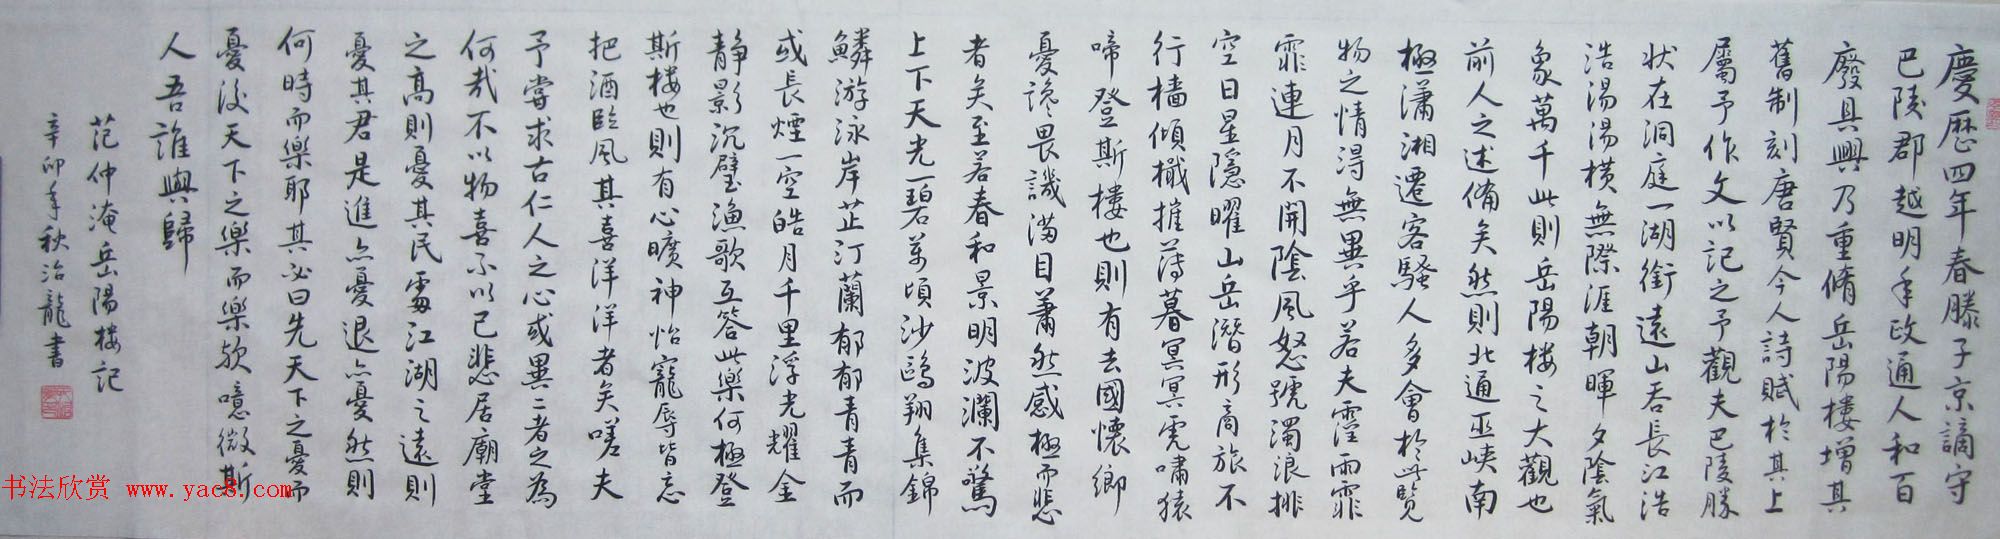 慶歷四年春滕子京謫守
巴陵郡越明年政通人和百
廢具興乃重脩岳陽樓增其
舊制刻唐賢今人詩賦於其上
屬予作文以記之予觀夫巴陵勝
狀在洞庭一湖銜遠山吞長江浩
浩湯湯橫無際涯朝暉夕陰氣
象萬千此則岳陽樓之大觀也
前人之述備矣然則北通巫峽南
極瀟湘遷客騷人多會於此覽
物之情得無異乎若夫霪雨霏
霏連月不開陰風怒號濁浪排
空日星隱曜山岳潛形商旅不
行檣傾檝摧薄暮冥冥虎嘯猿
啼登斯樓也則有去國懷鄉
憂讒畏譏滿目蕭然感極而悲
者矣至若春和景明波瀾不驚
上下天光一碧萬頃沙鷗翔集錦
鱗游泳岸芷汀蘭郁郁青青而
或長煙一空皓月千里浮光耀金
靜影沉璧漁歌互答此樂何極登
斯樓也則有心曠神怡寵辱皆忘
把酒臨風其喜洋洋者矣嗟夫
予嘗求古仁人之心或異二者之為
何哉不以物喜不以己悲居廟堂
之高則憂其民處江湖之遠則
憂其君是進亦憂退亦憂然則
何時而樂耶其必曰先天下之憂而
憂後天下之樂而樂歟噫微斯
人吾誰與歸
范仲淹岳陽樓記
辛卯年秋治龍書
书法欣赏 www.yac8.com